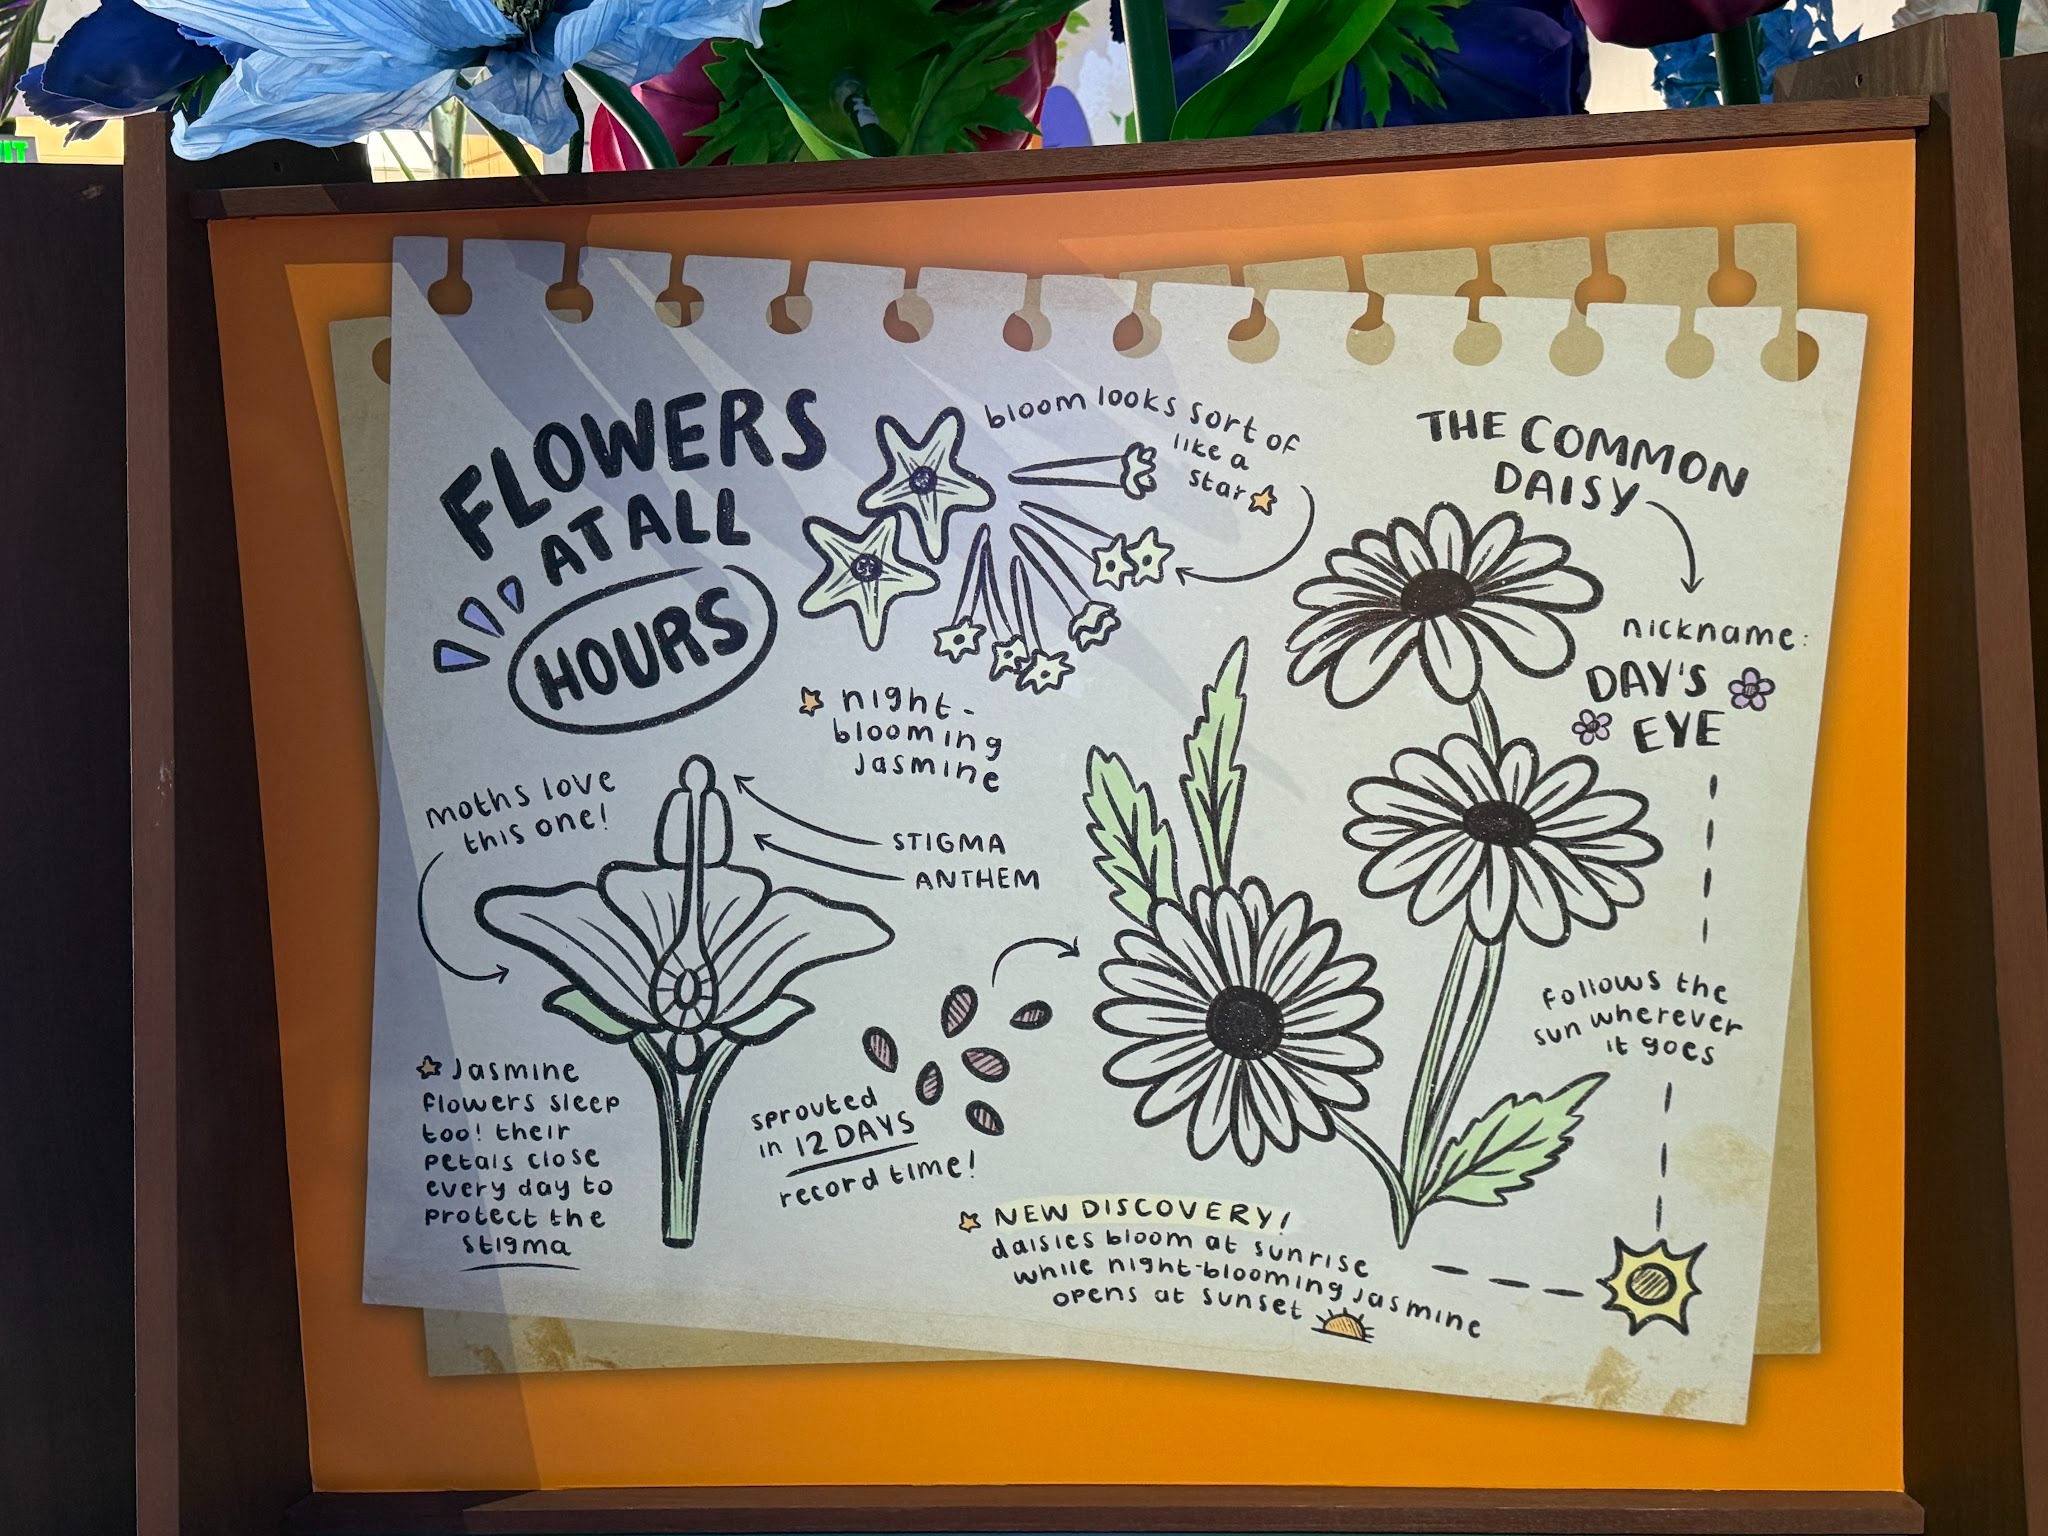 FLOWERS
AT ALL
HOURS
bloom looks sort of
like a
star
night-
blooming
jasmine
THE COMMON
DAISY
nickname:
DAY'S
EYE
moths love
this one!
STIGMA
ANTHEM
follows the
sun wherever
it goes
Jasmine
flowers sleep
too! their
petals close
every day to
protect the
stigma
sprouted
in 12 DAYS
record time!
NEW DISCOVERY!
daisies bloom at sunrise
while night-blooming jasmine
opens at sunset